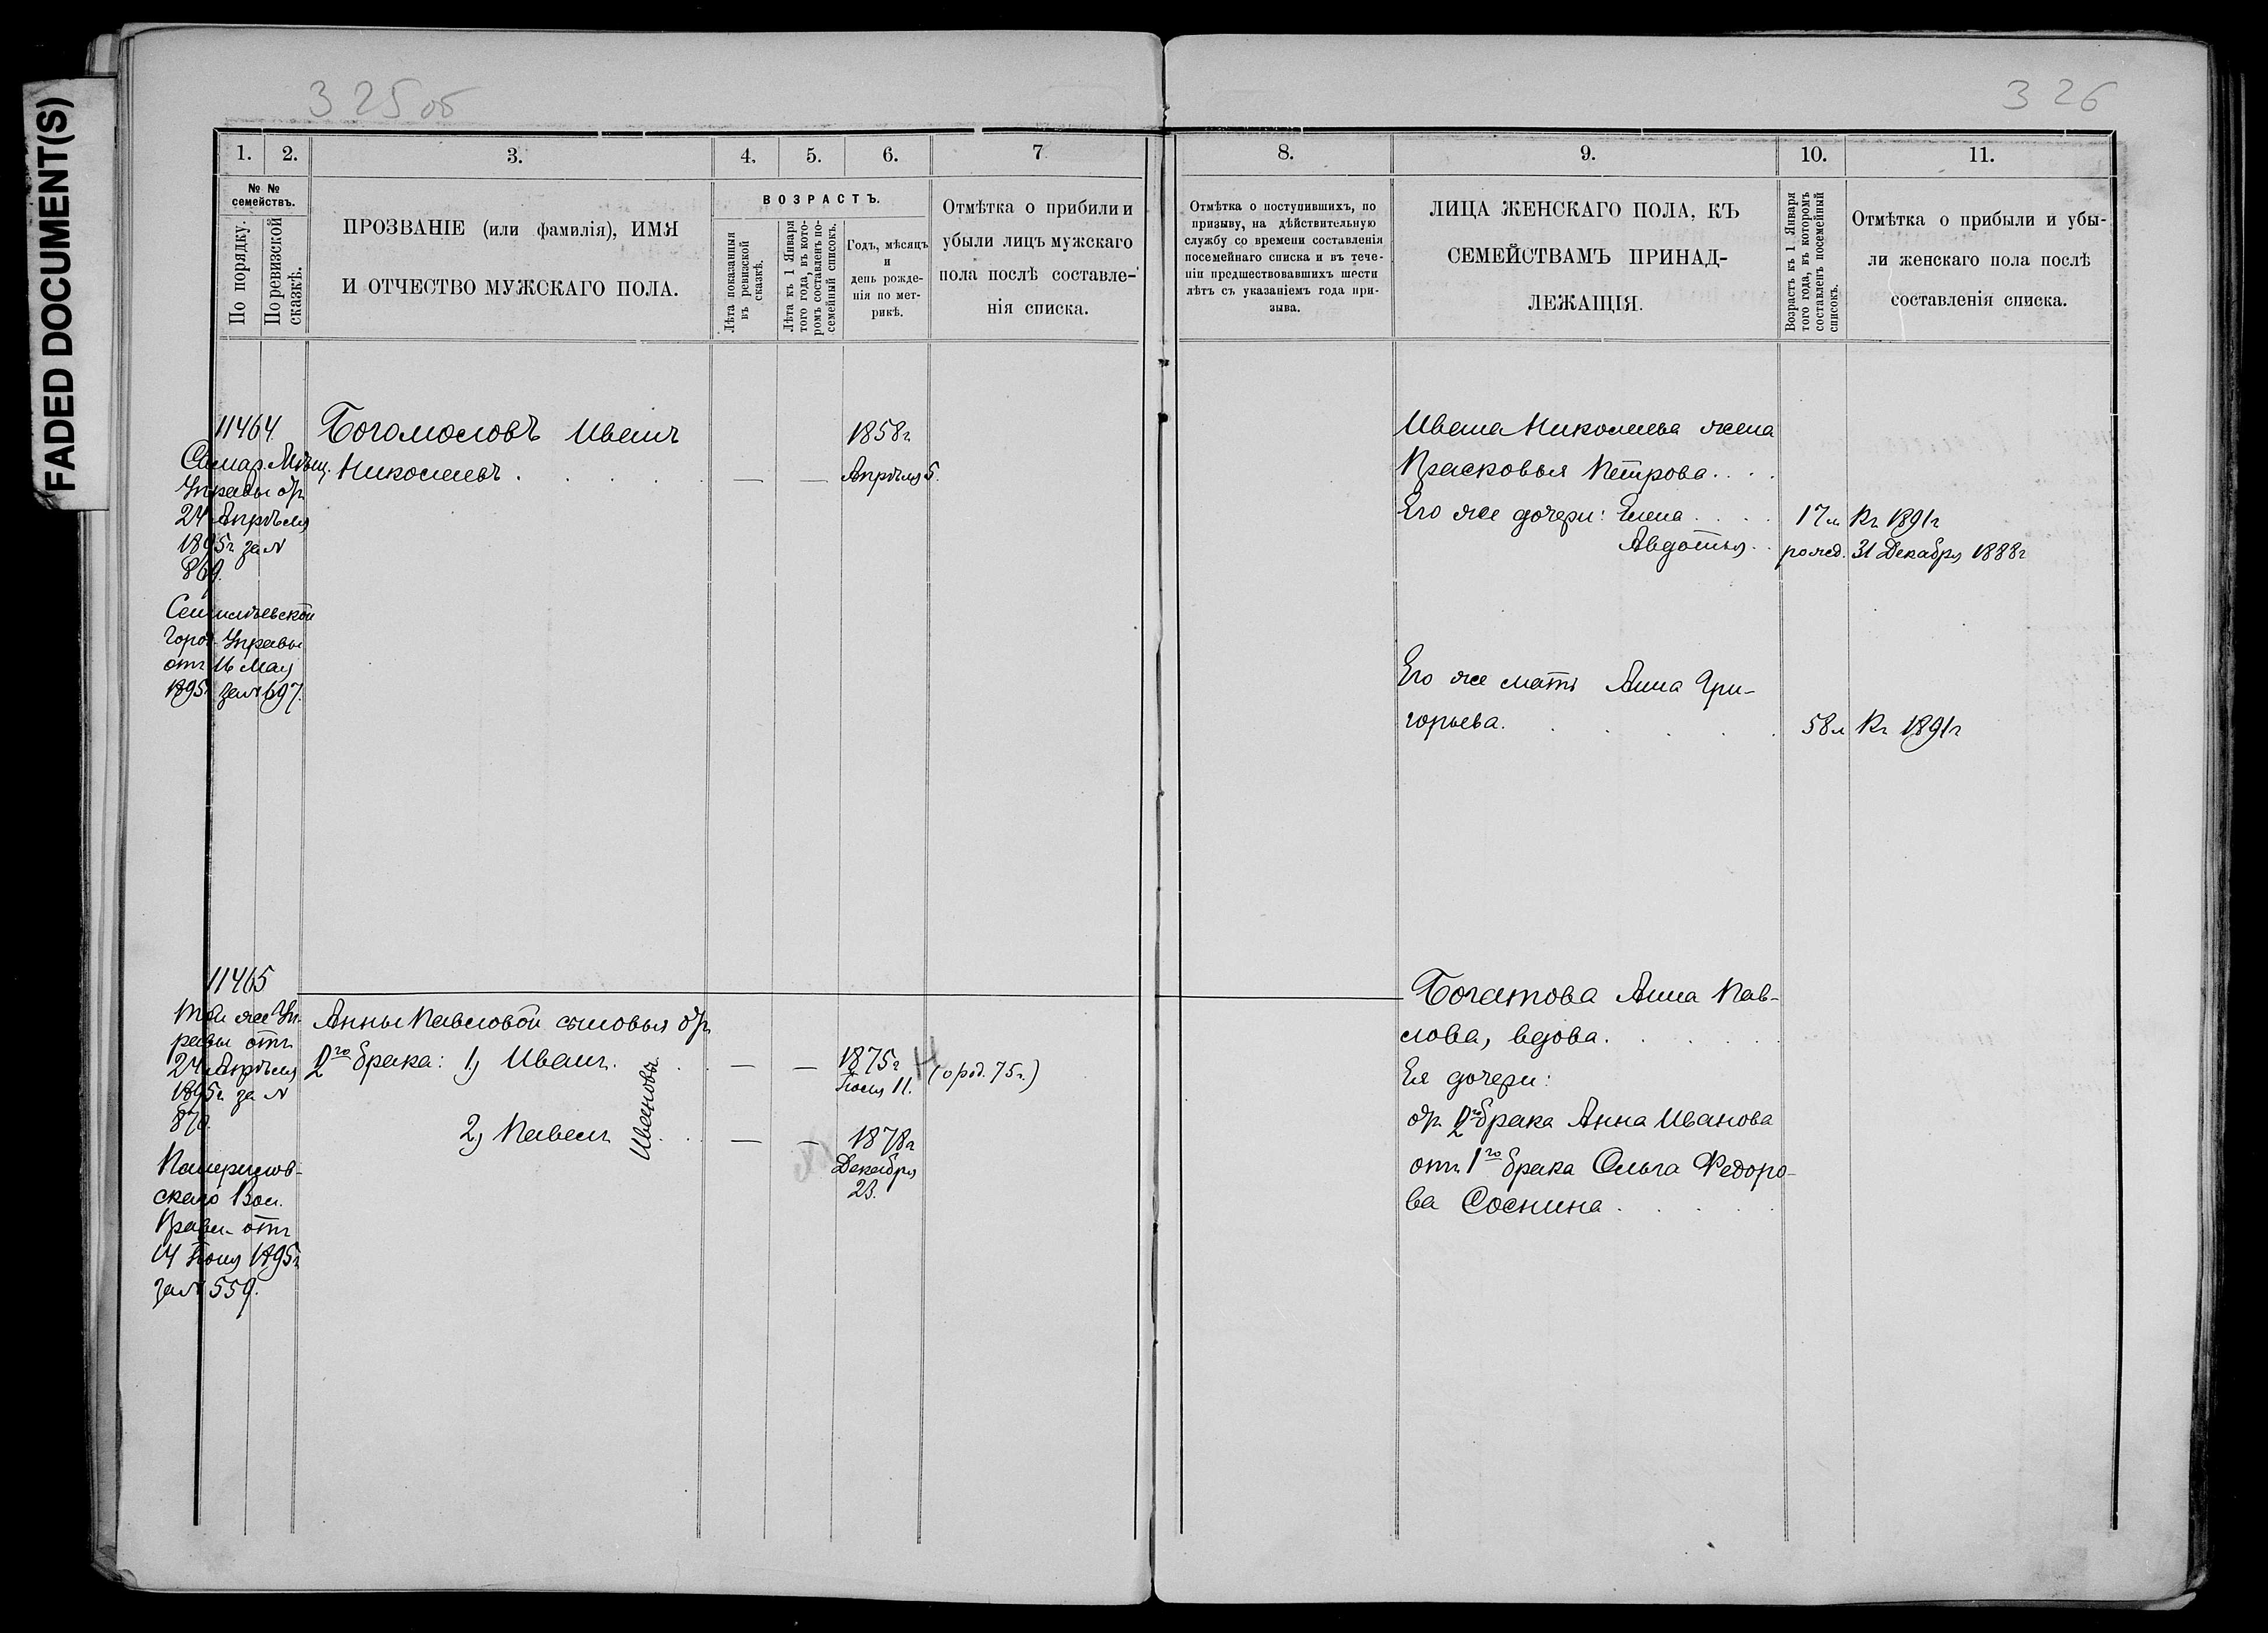 FADED DOCUMENT(S)
325об
1.
2.
3.
4.
5.
6.
7
№ №
семействъ.
По порядку.
По ревизской
сказкѣ.
ПРОЗВАНІЕ (или фамилія), ИМЯ
И ОТЧЕСТВО МУЖСКАГО ПОЛА.
ВОЗРАСТЪ.
Лѣта показанныя
въ ревизской
сказкѣ.
Лѣта къ 1 Января
того года, въ кото-
ромъ составленъ по-
семейный списокъ.
Годъ, мѣсяцъ
и
день рожде-
нія по мет-
рикѣ.
Отмѣтка о прибили и
убыли лицъ мужскаго
пола послѣ составле-
нія списка.
11464.
Самар. Мѣщ.
Управы отъ
24 Апрѣля
1895г за №
869.
Сенгилѣевской
Город. Управы
отъ 16 Мая
1895г за № 697.
Богомоловъ Иванъ
Николаевъ . . . . .
— —
1858г
Апрѣля 5.
11465
Той же Уп-
равы отъ
24 Апрѣля
1895г. за №
870.
скаго Вол.
Правл. отъ
14 Іюня 1895г
за № 559.
Анны Павловой сыновья отъ
2го брака: 1) Иванъ. . .
— —
1875г
Іюля 11.
(о род. 75г.)
2) Павелъ . .
Ивановы
— —
1878г
Декабря
23.
326
8.
9.
10.
11.
Отмѣтка о поступившихъ, по
призыву, на дѣйствительную
службу со времени составленія
посемейнаго списка и въ тече-
ніи предшествовавшихъ шести
лѣтъ съ указаніемъ года при-
зыва.
ЛИЦА ЖЕНСКАГО ПОЛА, КЪ
СЕМЕЙСТВАМЪ ПРИНАД-
ЛЕЖАЩІЯ.
Возрастъ къ 1 Января
того года, въ которомъ
составленъ посемейный
списокъ.
Отмѣтка о прибыли и убы-
ли женскаго пола послѣ
составленія списка.
Ивана Николаева жена
Прасковья Петрова. . . .
Его же дочери: Елена . . . . 17л Къ 1891г
Авдотья . . рожд. 31 Декабря 1888г
Его же мать Анна Гри-
горьева. . . . . . 58л Къ 1891г
Богатова Анна Пав-
лова, вдова. . . . .
Ея дочери:
отъ 2го брака Анна Иванова
отъ 1го брака Ольга Федоро-
ва Соснина . . . . .